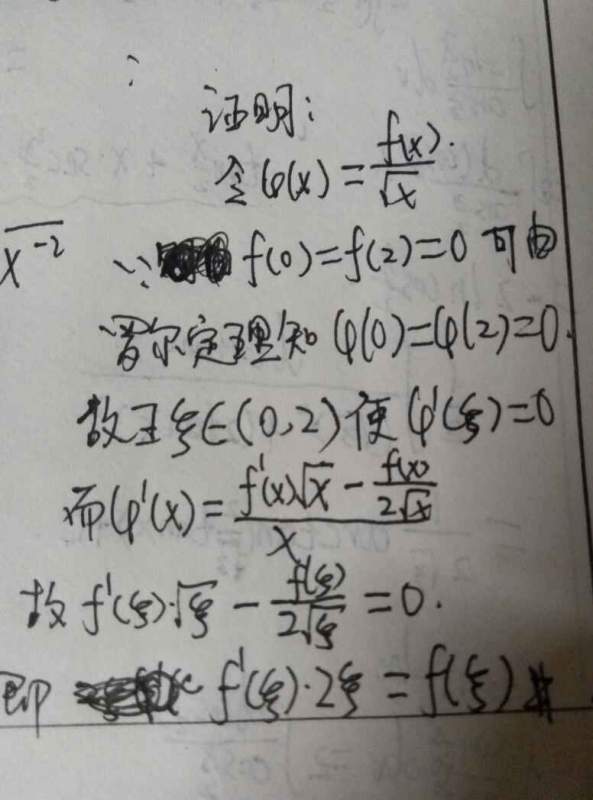 ∴
证明:
令φ(x)=f(x)/√x.
x^-2
∵ f(0)=f(2)=0 可由
罗尔定理知 φ(0)=φ(2)=0.
故∃ξ∈(0,2)使φ'(ξ)=0
而φ'(x)=(f'(x)√x - f(x)/2√x)/x
故f'(ξ)·√ξ - f(ξ)/2√ξ =0.
即 f'(ξ)·2ξ=f(ξ) #